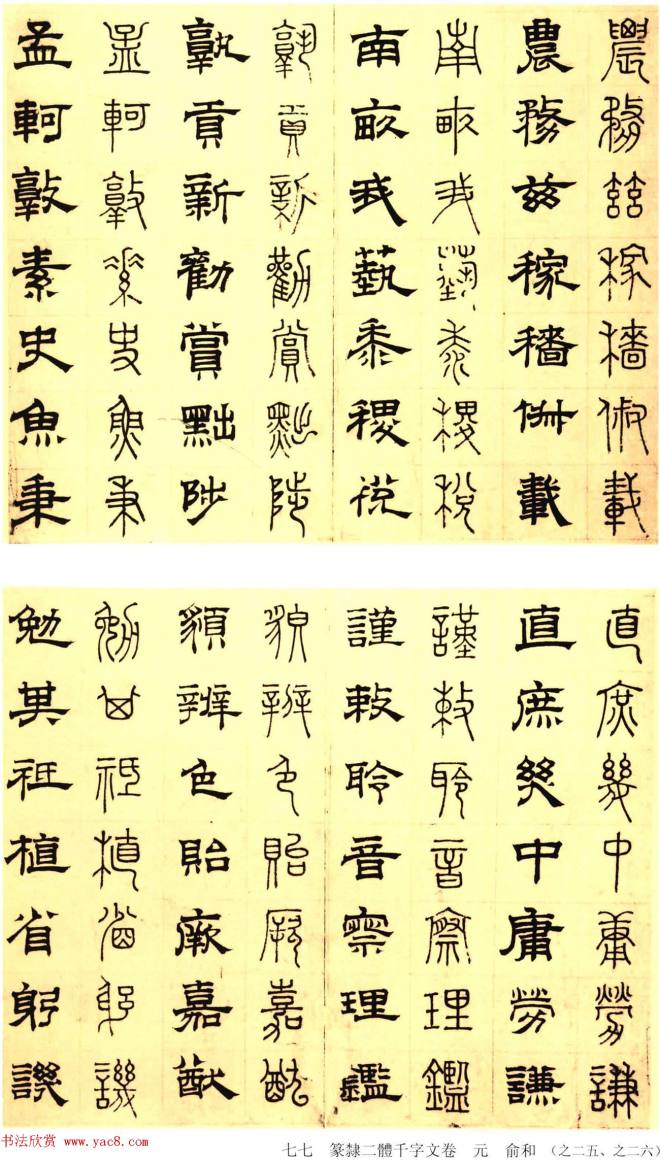 農務茲稼穡俶載
農務茲稼穡俶載
南畝我藝黍稷稅
南畝我藝黍稷稅
孰貢新勸賞黜陟
孰貢新勸賞黜陟
孟軻敦素史魚秉
孟軻敦素史魚秉
直庶幾中庸勞謙
直庶幾中庸勞謙
謹敕聆音察理鑑
謹敕聆音察理鑑
貌辨色貽厥嘉猷
貌辨色貽厥嘉猷
勉其祗植省躬譏
勉其祗植省躬譏
书法欣赏 www.yac8.com
七七 篆隸二體千字文卷 元 俞和 (之二五、之二六)